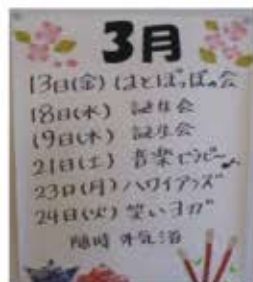 3月
13日(金) はとぽっぽの会
18日(水) 誕生会
19日(木) 誕生会
21日(土) 音楽セラピー♪
23日(月) ハワイアンズ
24日(火) 笑いヨガ
随時 外気浴